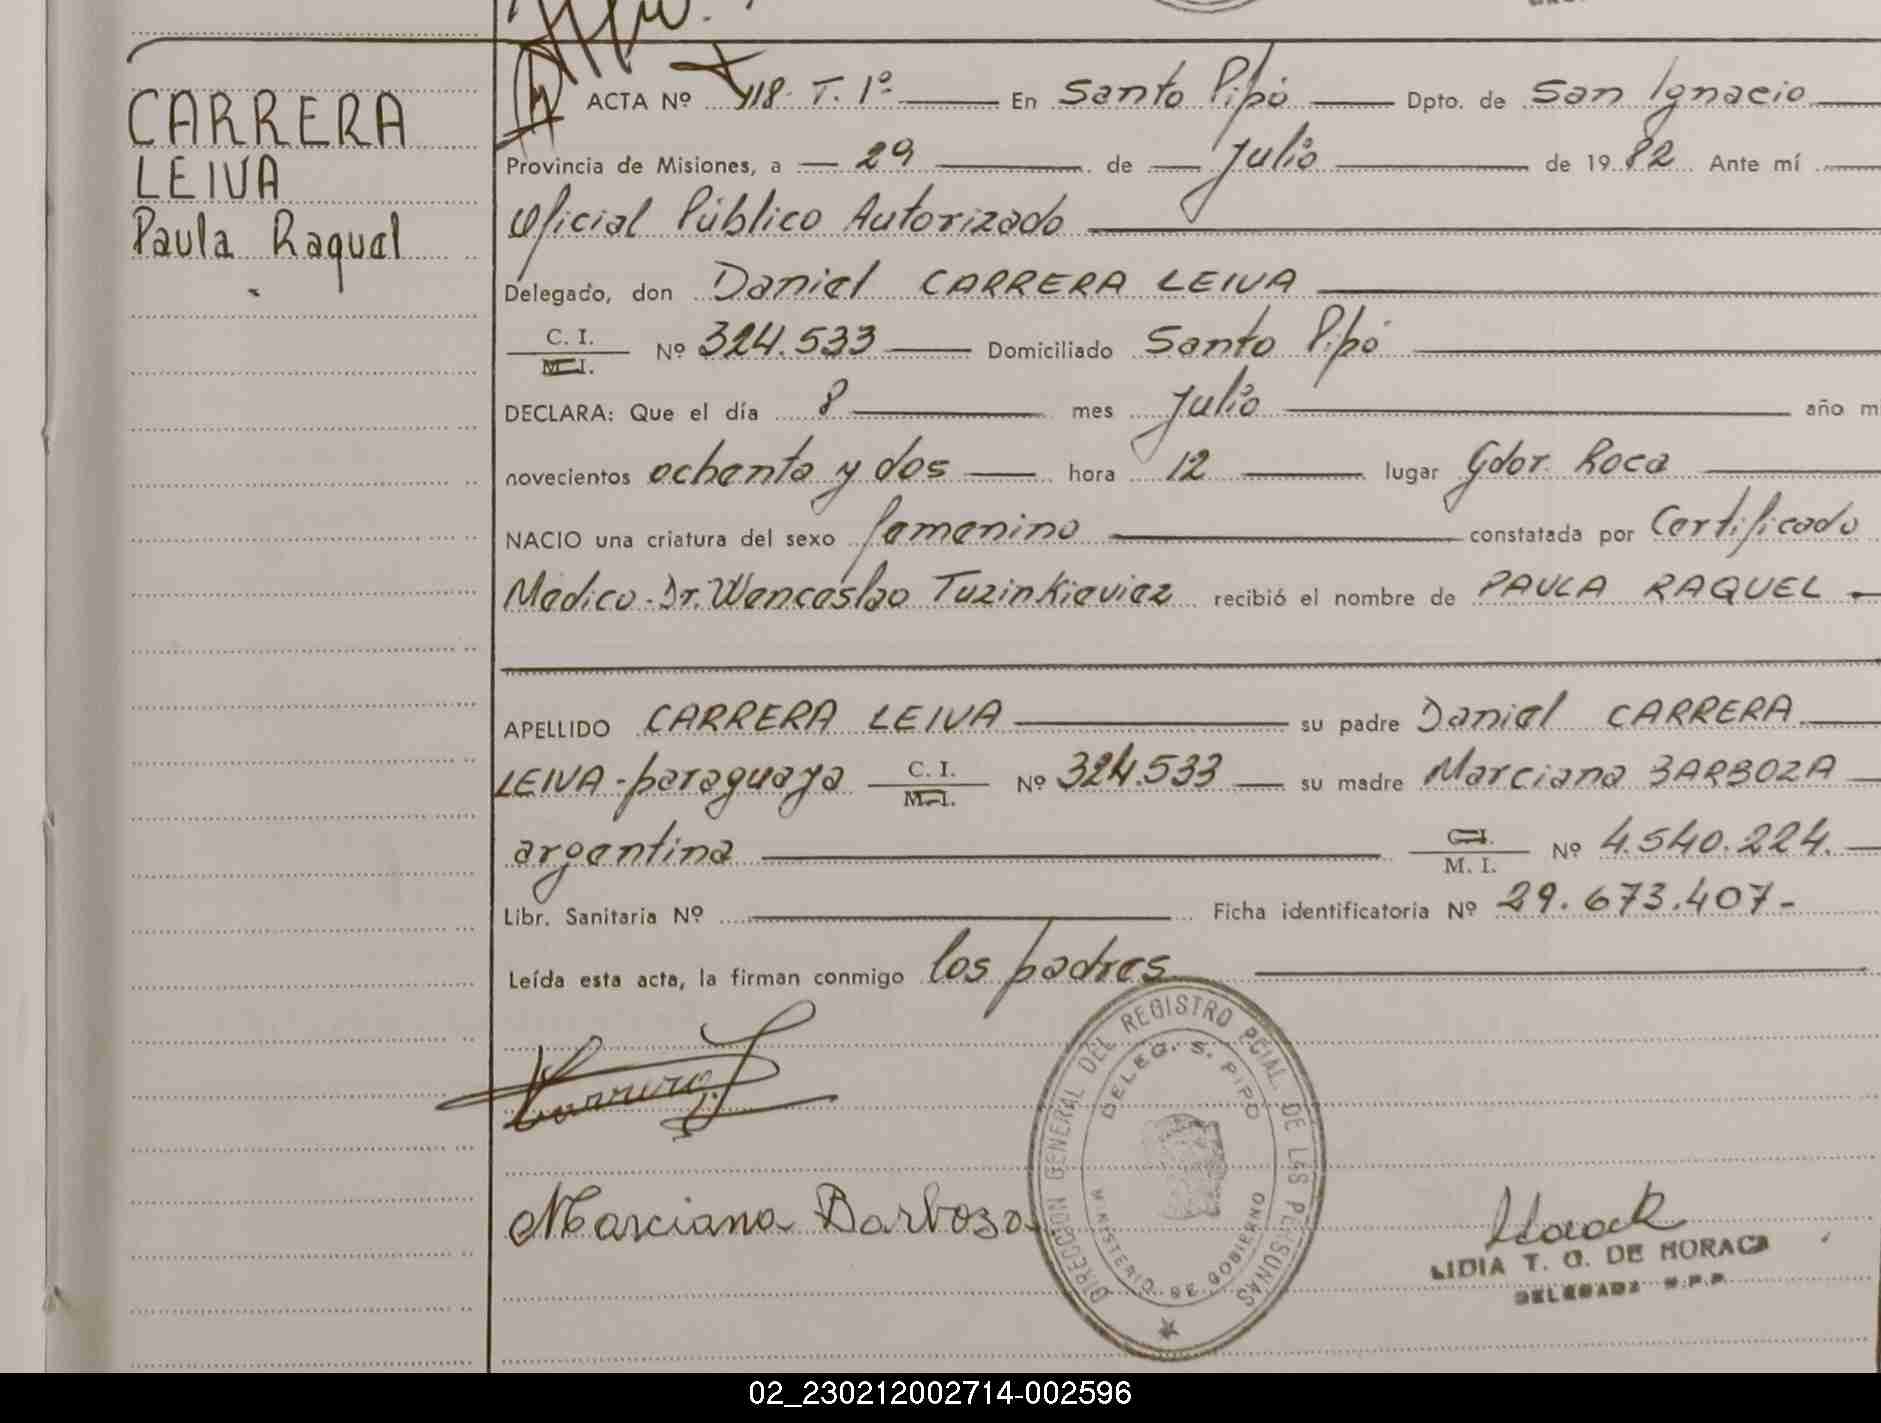 CARRERA
LEIVA
Paula Raquel
ACTA Nº 118 T. 1º En Santo Pipó Dpto. de San Ignacio
Provincia de Misiones, a 29 de Julio de 1982 Ante mí
Oficial Público Autorizado
Delegado, don Daniel CARRERA LEIVA
C. I.
M. I. Nº 324.533 Domiciliado Santo Pipó
DECLARA: Que el día 8 mes Julio año m
novecientos ochenta y dos hora 12 lugar Gdor. Roca
NACIO una criatura del sexo femenino constatada por Certificado
Médico. Dr. Wenceslao Tuzinkieviez recibió el nombre de PAULA RAQUEL
APELLIDO CARRERA LEIVA su padre Daniel CARRERA
LEIVA - paraguaya C. I. M. I. Nº 324.533 su madre Marciana BARBOZA
argentina C. I. M. I. Nº 4.540.224.
Libr. Sanitaria Nº Ficha identificatoria Nº 29.673.407-
Leída esta acta, la firman conmigo los padres
DIRECCION GENERAL DEL REGISTRO PCIAL. DE LAS PERSONAS
DELEG. S. PIPO
MINISTERIO DE GOBIERNO
Marciana Barboza
LIDIA T. G. DE HORACK
DELEGADA R.P.P.
02_230212002714-002596